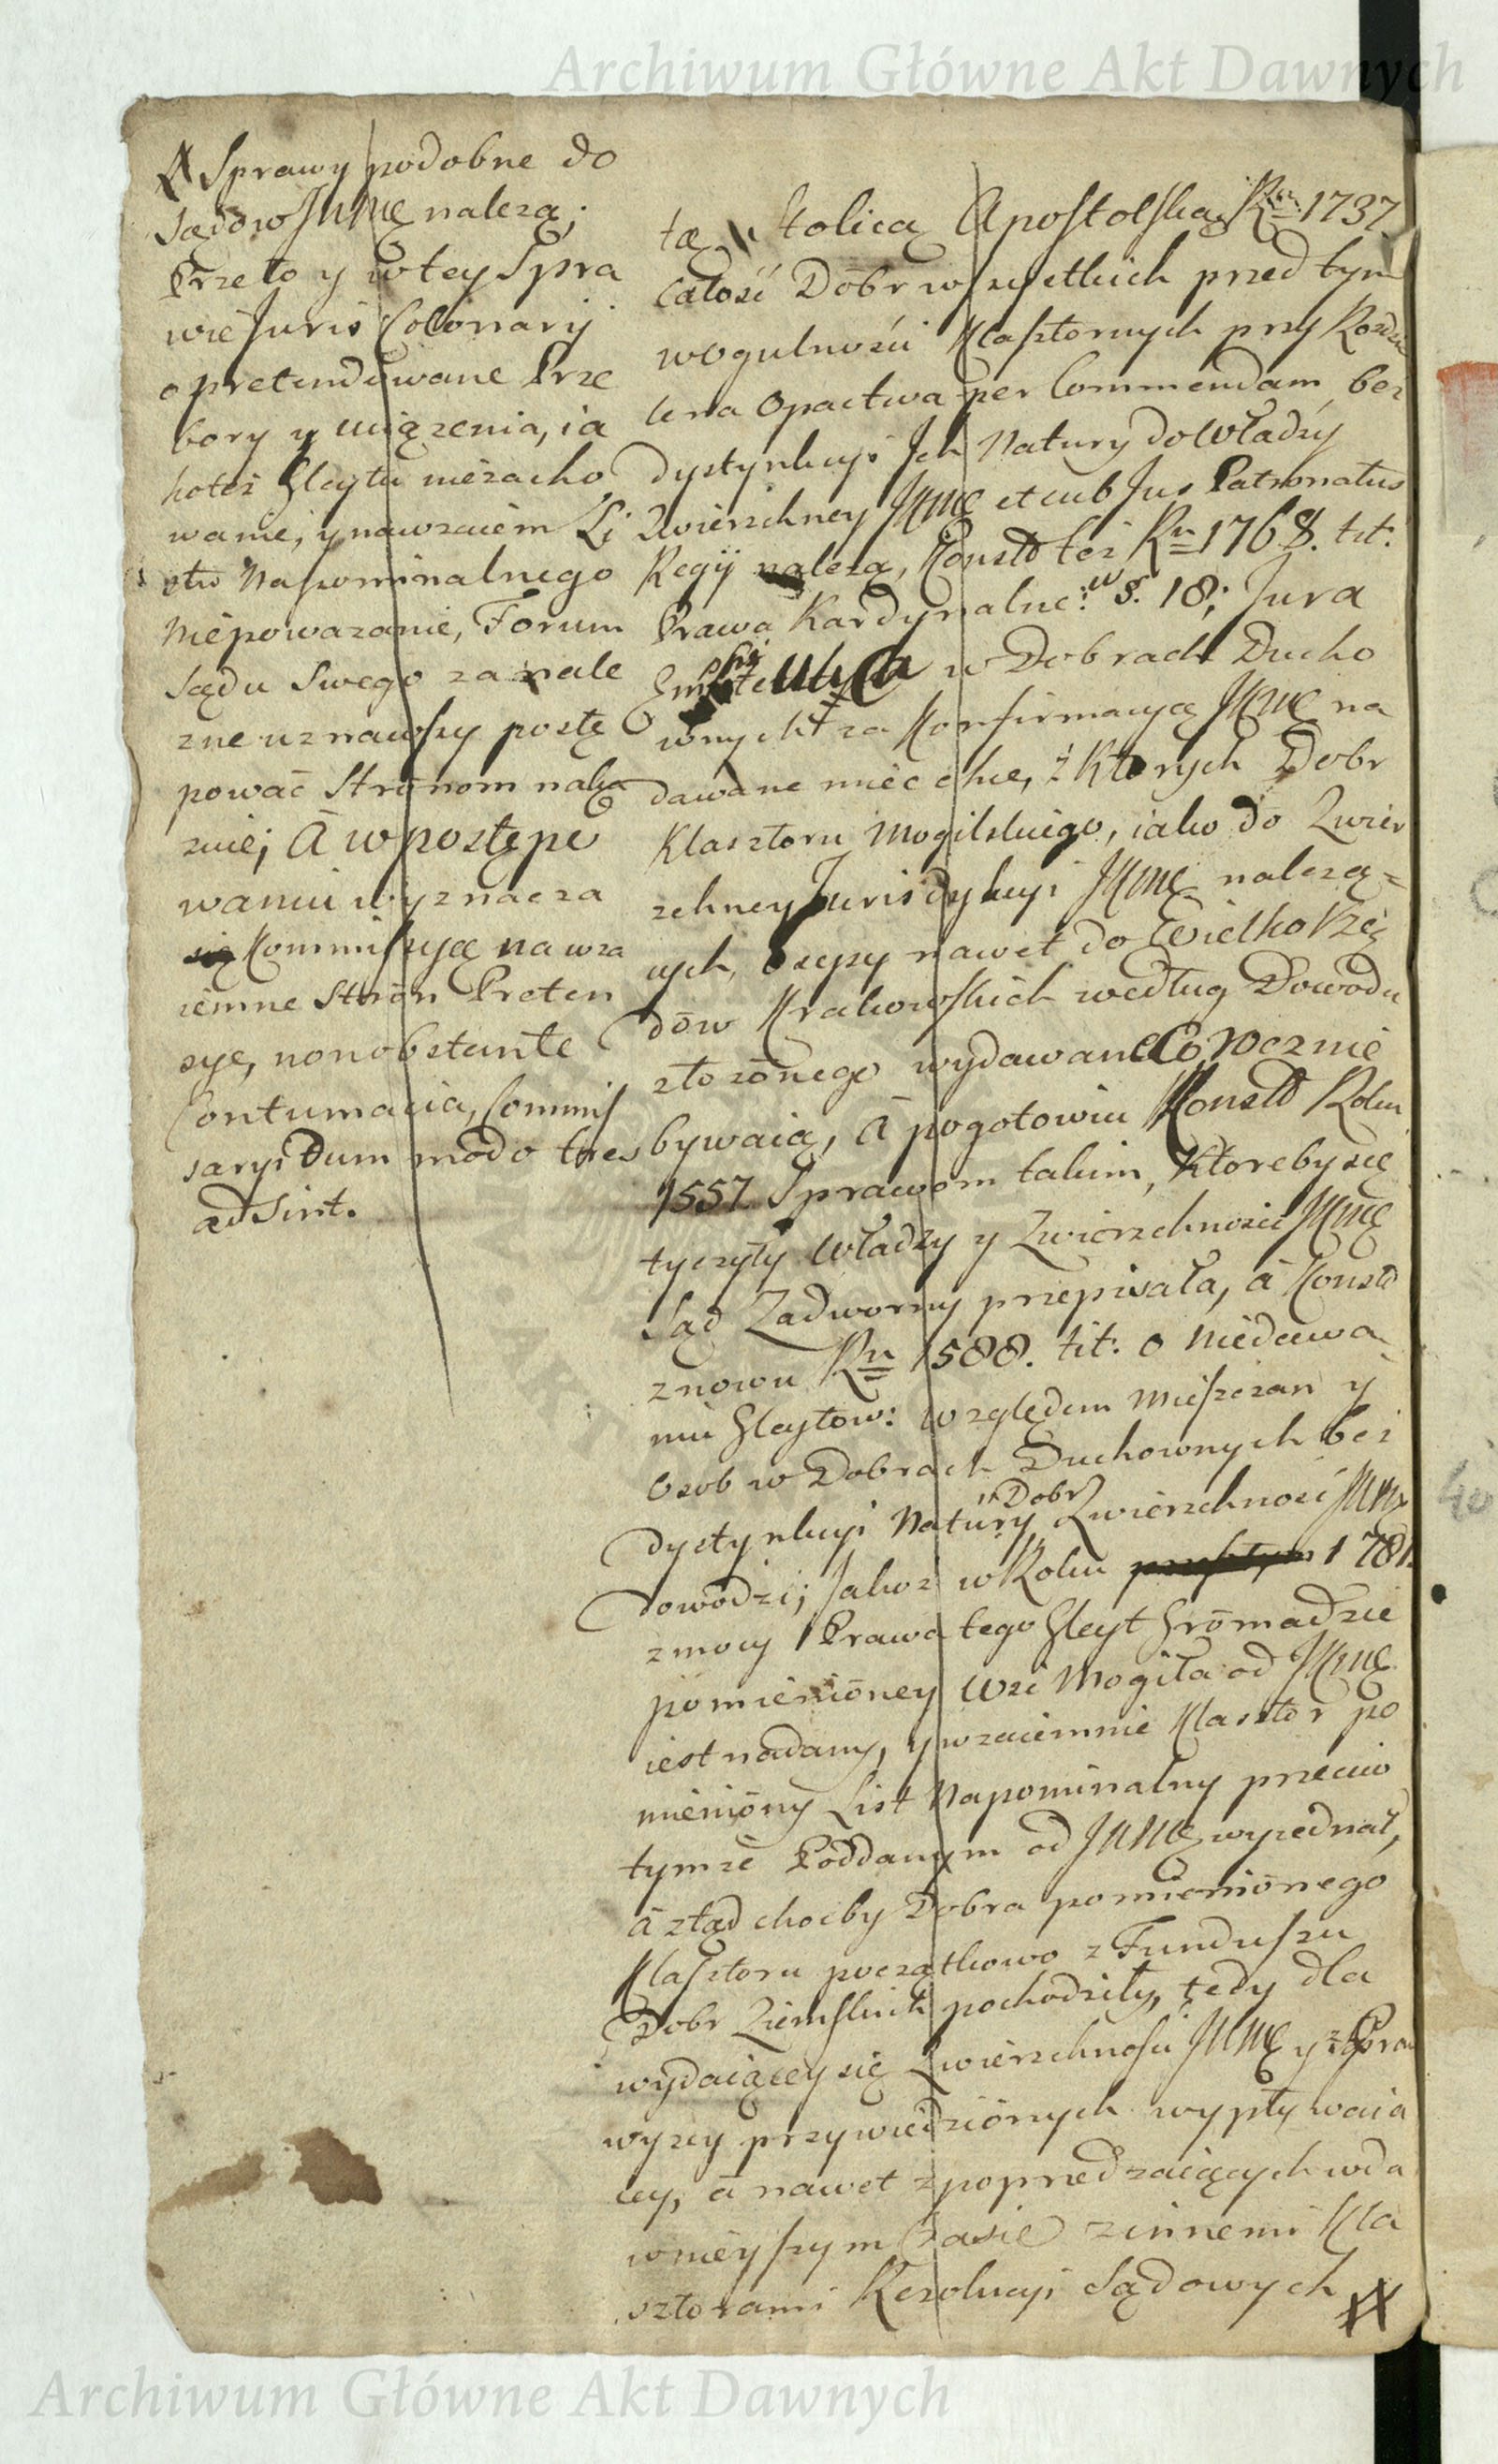 Archiwum Główne Akt Dawnych
Sprawy podobne do
Sądow JKMę nalezą;
Przeto y w tey Spra
wie Juris Colonarij
o pretendowane Prze
bory y uciązenia, ia
kotez Gleytu niezacho
wanie, y nawzaiem Li
stu Napominalnego
Niepowazanie, Forum
Sądu Swego za nale
zne uznawszy postę
pować Stronom naka
zuie; A w postępo
waniu wyznacza
Kommissyę na wza
iemne Strōn Preten
sye, non obstante
Contumacia, Commis
sarys Dum modo tres
adsint.
tą Stolicą Apostolską Ru 1737
całość Dobr wszystkich przed tym
w ogulności Klasztornych przy Rozdzie
leniu Opactwa per Commendam, bez
dystynkcyi Ich Natury do Władzy
Zwierzchney JKMę et sub Jus Patronatus
Regij nalezą, Konstō tez Ru 1768. tit:
Prawa Kardynalne: w §. 18; Jura
w Dobrach Ducho
wnych za Konfirmacyą JKMę na
dawane miec chce, z Ktorych Dobr
Klasztoru Mogilskiego, iako do Zwier
zchney Jurisdykcyi JKMę nalezą=
cych, Osepy nawet do Wielko Rzą
dōw Krakowskich według Dowodu
złozōnego wydawane Corocznie
bywaią, ā pogotowiu Konstō Roku
1557 Sprawom takim, Ktoreby się
tyczyły Władzy y Zwierzchności JKMę
Sąd Zadworny przepisała, ā Konstō
znowu Ru 1588. tit: O niedawa
niu Gleytow: względem Mieszczan y
Osob w Dobrach Duchownych bez
dystynkcyi Natury Dobr Zwierzchność JKMę
dowodzi; Jakoz w Roku 1781
z mocy Prawa tego Gleyt Grōmadzie
pomieniōney Wsi Mogiła od JKMę
iest nadany, y wzaiemnie Klasztor po
mieniōny List Napominalny przeciw
tymze Poddanym od JKMę wyiednał,
ā ztąd choćby Dobra pomieniōnego
Klasztoru początkowo z Funduszu
Dobr Ziemskich pochodziły, tedy dla
wydaiącey się Zwierzchności JKMę y z Praw
wyzey przywiedziōnych wypływaia
cey, ā nawet z poprzedzaiących w da
wnieyszym Czasie z innemi Kla
sztorami Rezolucyi Sądowych
40
Archiwum Główne Akt Dawnych